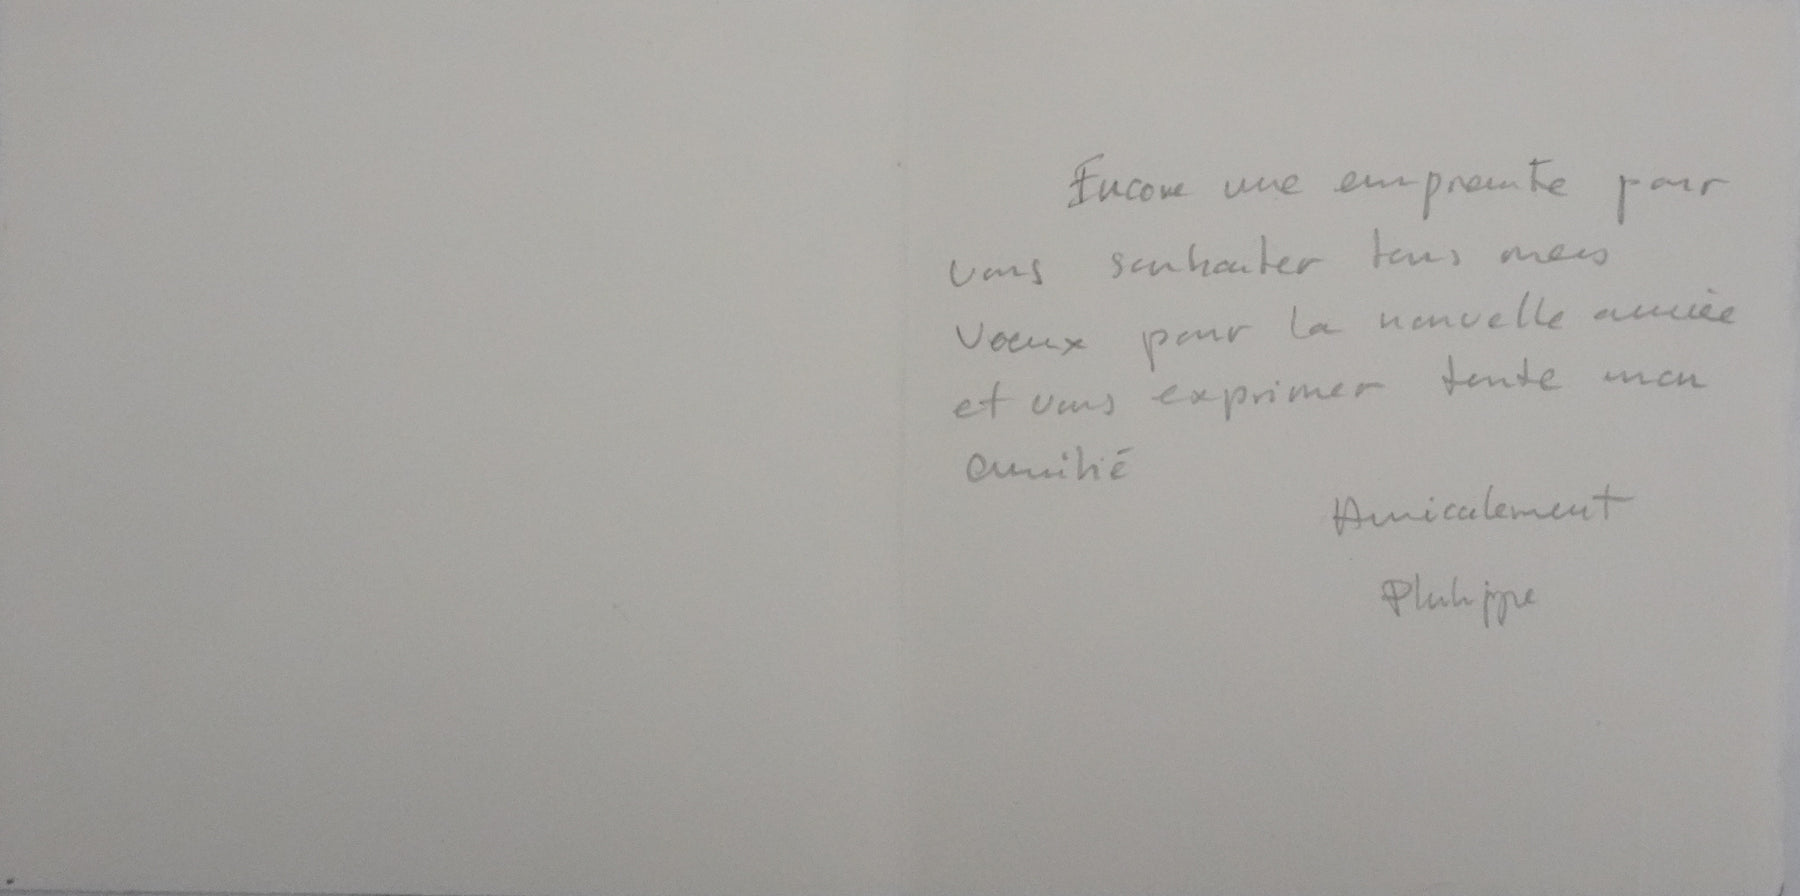 Encore une empreinte pour
vous souhaiter tous mes
voeux pour la nouvelle année
et vous exprimer toute mon
amitié
Amicalement
Philippe